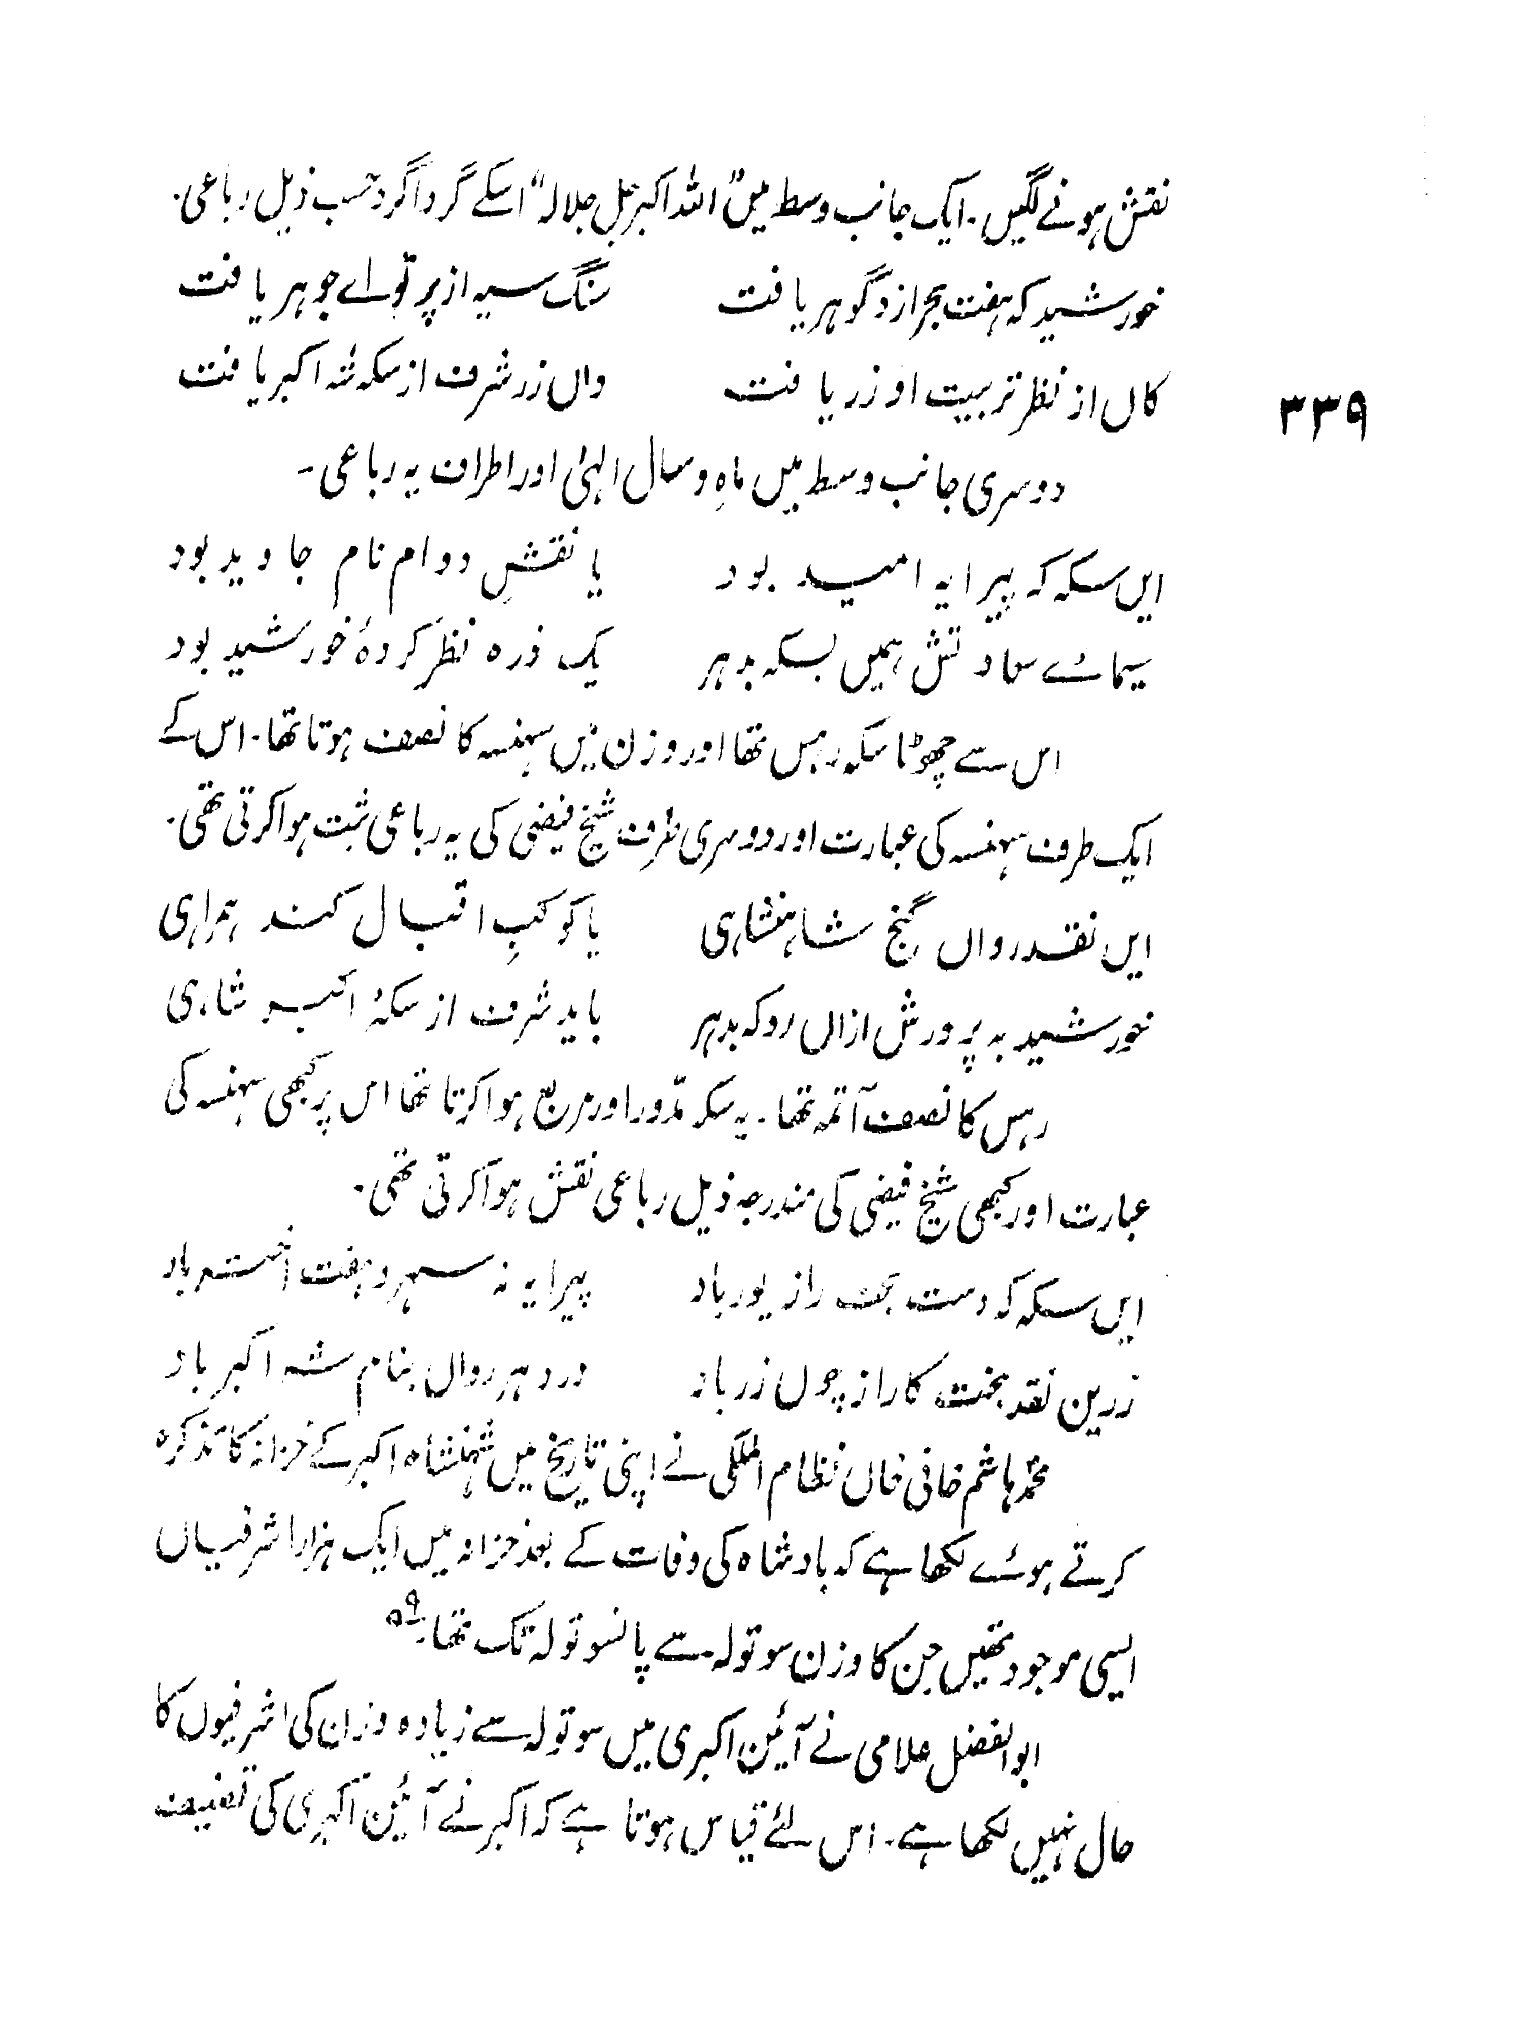 نقش ہونے لگیں۔ ایک جانب وسط میں "اللہ اکبر جل جلالہ" اسکے گرداگرد حسب ذیل رباعی۔
خورشید کہ ہفت بحر ازو گوہر یافت سنگ سیہ از پرتو اے جوہر یافت
کاں از نظر تربیت او زر یافت واں زر شرف از سکہ شہ اکبر یافت
۳۳۹
دوسری جانب وسط میں ماہ و سال الٰہی اور اطراف یہ رباعی۔
ایں سکہ کہ پیرایہ امید بود یا نقشِ دوام نام جاوید بود
سیمائے سعادتش ہمیں بسکہ بدہر یک ذرہ نظر کردۂ خورشید بود
اس سے چھوٹا سکہ رہس تھا اور وزن میں سہنسہ کا نصف ہوتا تھا۔ اس کے
ایک طرف سہنسہ کی عبارت اور دوسری طرف شیخ فیضی کی یہ رباعی ثبت ہوا کرتی تھی۔
ایں نقد رواں گنج شاہنشاہی یا کوکبِ اقبال کند ہمراہی
خورشید بہ پرورش ازاں رو کہ بدہر یابد شرف از سکۂ اکبر شاہی
رہس کا نصف آتمہ تھا۔ یہ سکہ مدّور اور مربع ہوا کرتا تھا اس پر کبھی سہنسہ کی
عبارت اور کبھی شیخ فیضی کی مندرجہ ذیل رباعی نقش ہوا کرتی تھی۔
ایں سکہ کہ دست بخت را زیور باد پیرایہ نہ سپہر و ہفت اختر باد
زرین نقد بخت کار از چوں زر باد در دہر رواں بنام شہ اکبر باد
محمد ہاشم خافی خاں نظام الملکی نے اپنی تاریخ میں شہنشاہ اکبر کے خزانہ کا تذکرہ
کرتے ہوئے لکھا ہے کہ بادشاہ کی وفات کے بعد خزانہ میں ایک ہزار اشرفیاں
ایسی موجود تھیں جن کا وزن سو تولہ سے پانسو تولہ تک تھا۔
ابو الفضل علامی نے آئین اکبری میں سو تولہ سے زیادہ وزن کی اشرفیوں کا
حال نہیں لکھا ہے۔ اس لئے قیاس ہوتا ہے کہ اکبر نے آئین اکبری کی تصنیف